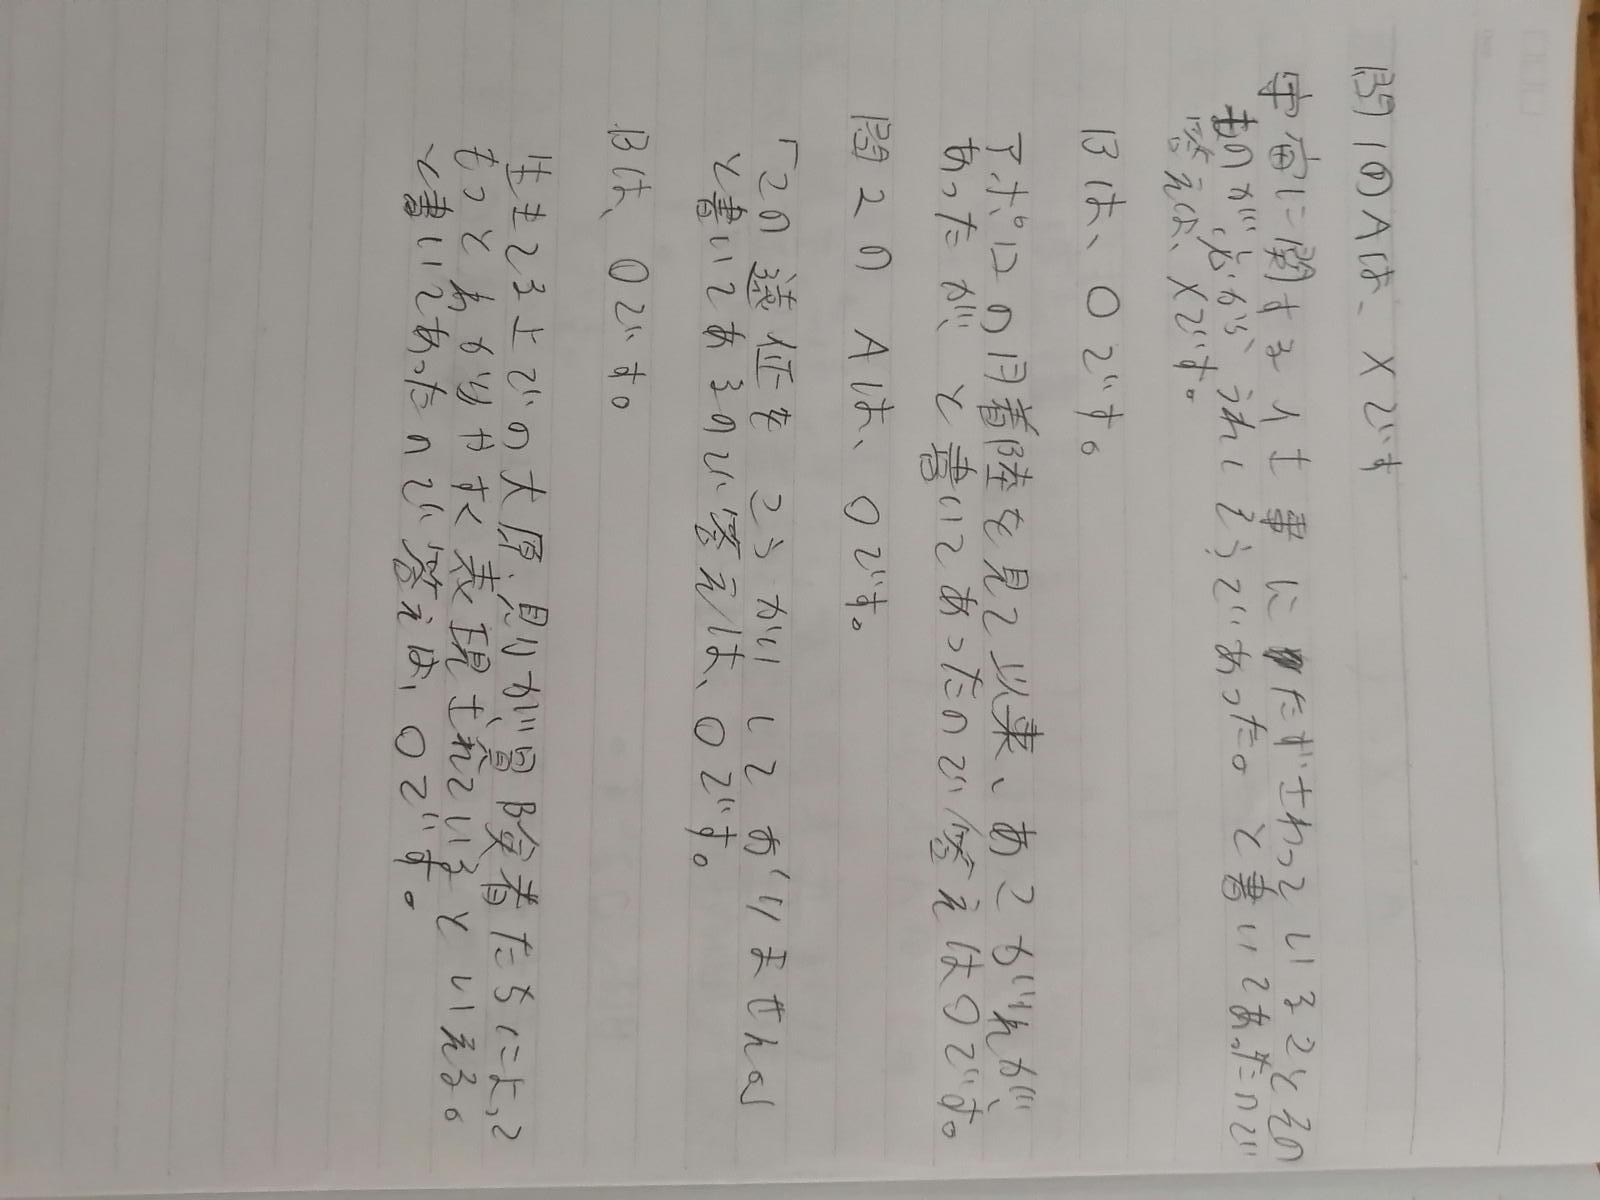 問1のAは、×です
宇宙に関する仕事にたずさわっていることその
ものが心から、うれしそうであった。と書いてあったので
答えは、×です。
Bは、○です。
アポロの月着陸を見て以来、あこがれが
あったが、と書いてあったので答えは○です。
問2のAは、○です。
「この遠征をこうかいしておりません」
と書いてあるので答えは、○です。
Bは、○です。
生きる上での大原則が冒険者たちによって
もっともわかりやすく表現されているといえる。
と書いてあったので答えは、○です。